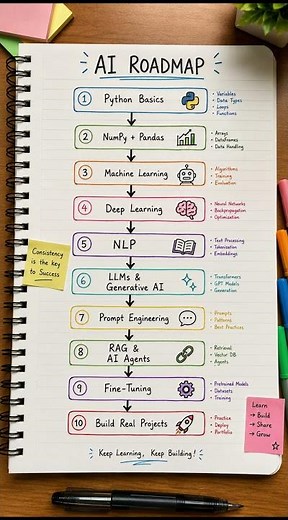 AI ROADMAP
1 Python Basics
• Variables
• Data Types
• Loops
• Functions
2 NumPy + Pandas
• Arrays
• DataFrames
• Data Handling
3 Machine Learning
• Algorithms
• Training
• Evaluation
4 Deep Learning
• Neural Networks
• Backpropagation
• Optimization
5 NLP
• Text Processing
• Tokenization
• Embeddings
Consistency
is the key
to Success
6 LLMs &
Generative AI
• Transformers
• GPT Models
• Generation
7 Prompt Engineering
• Prompts
• Patterns
• Best Practices
8 RAG &
AI Agents
• Retrieval
• Vector DB
• Agents
9 Fine-Tuning
• Pretrained Models
• Datasets
• Training
10 Build Real Projects
• Practice
• Deploy
• Portfolio
Learn
→ Build
→ Share
→ Grow
Keep Learning, Keep Building!